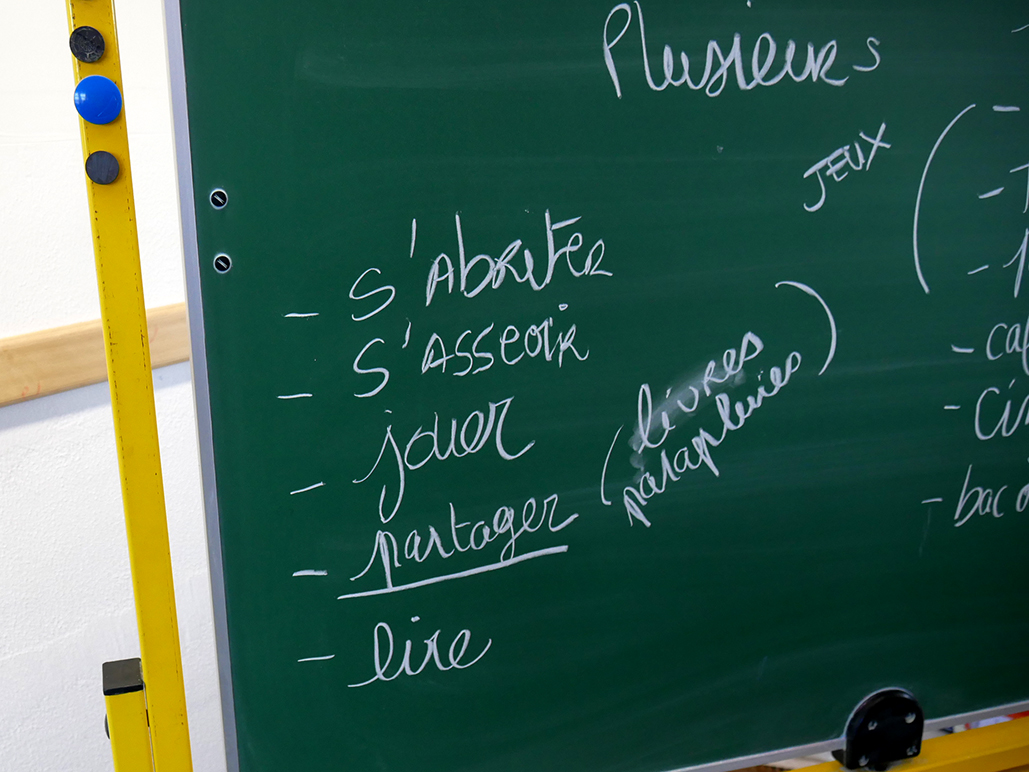 Plusieurs
JEUX
- s'Abriter
- s'Asseoir
- jouer
- partager (livres
parapluies)
- lire
- bac